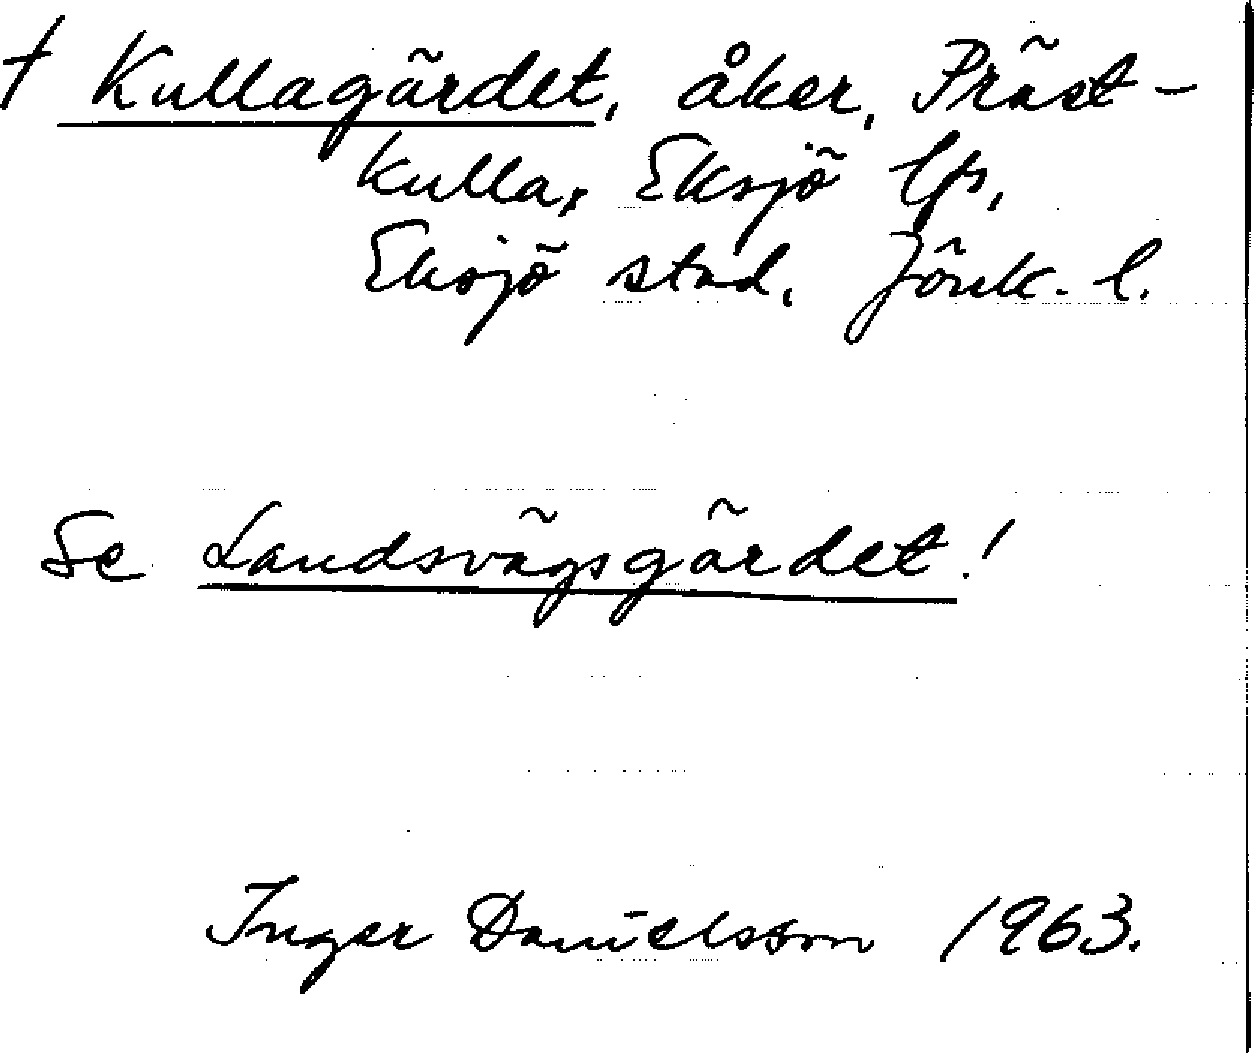 † Kullagärdet, åker, Präst-
kulla, Eksjö lfs,
Eksjö stad, Jönk. l.
Se Landsvägsgärdet!
Inger Danielsson 1963.